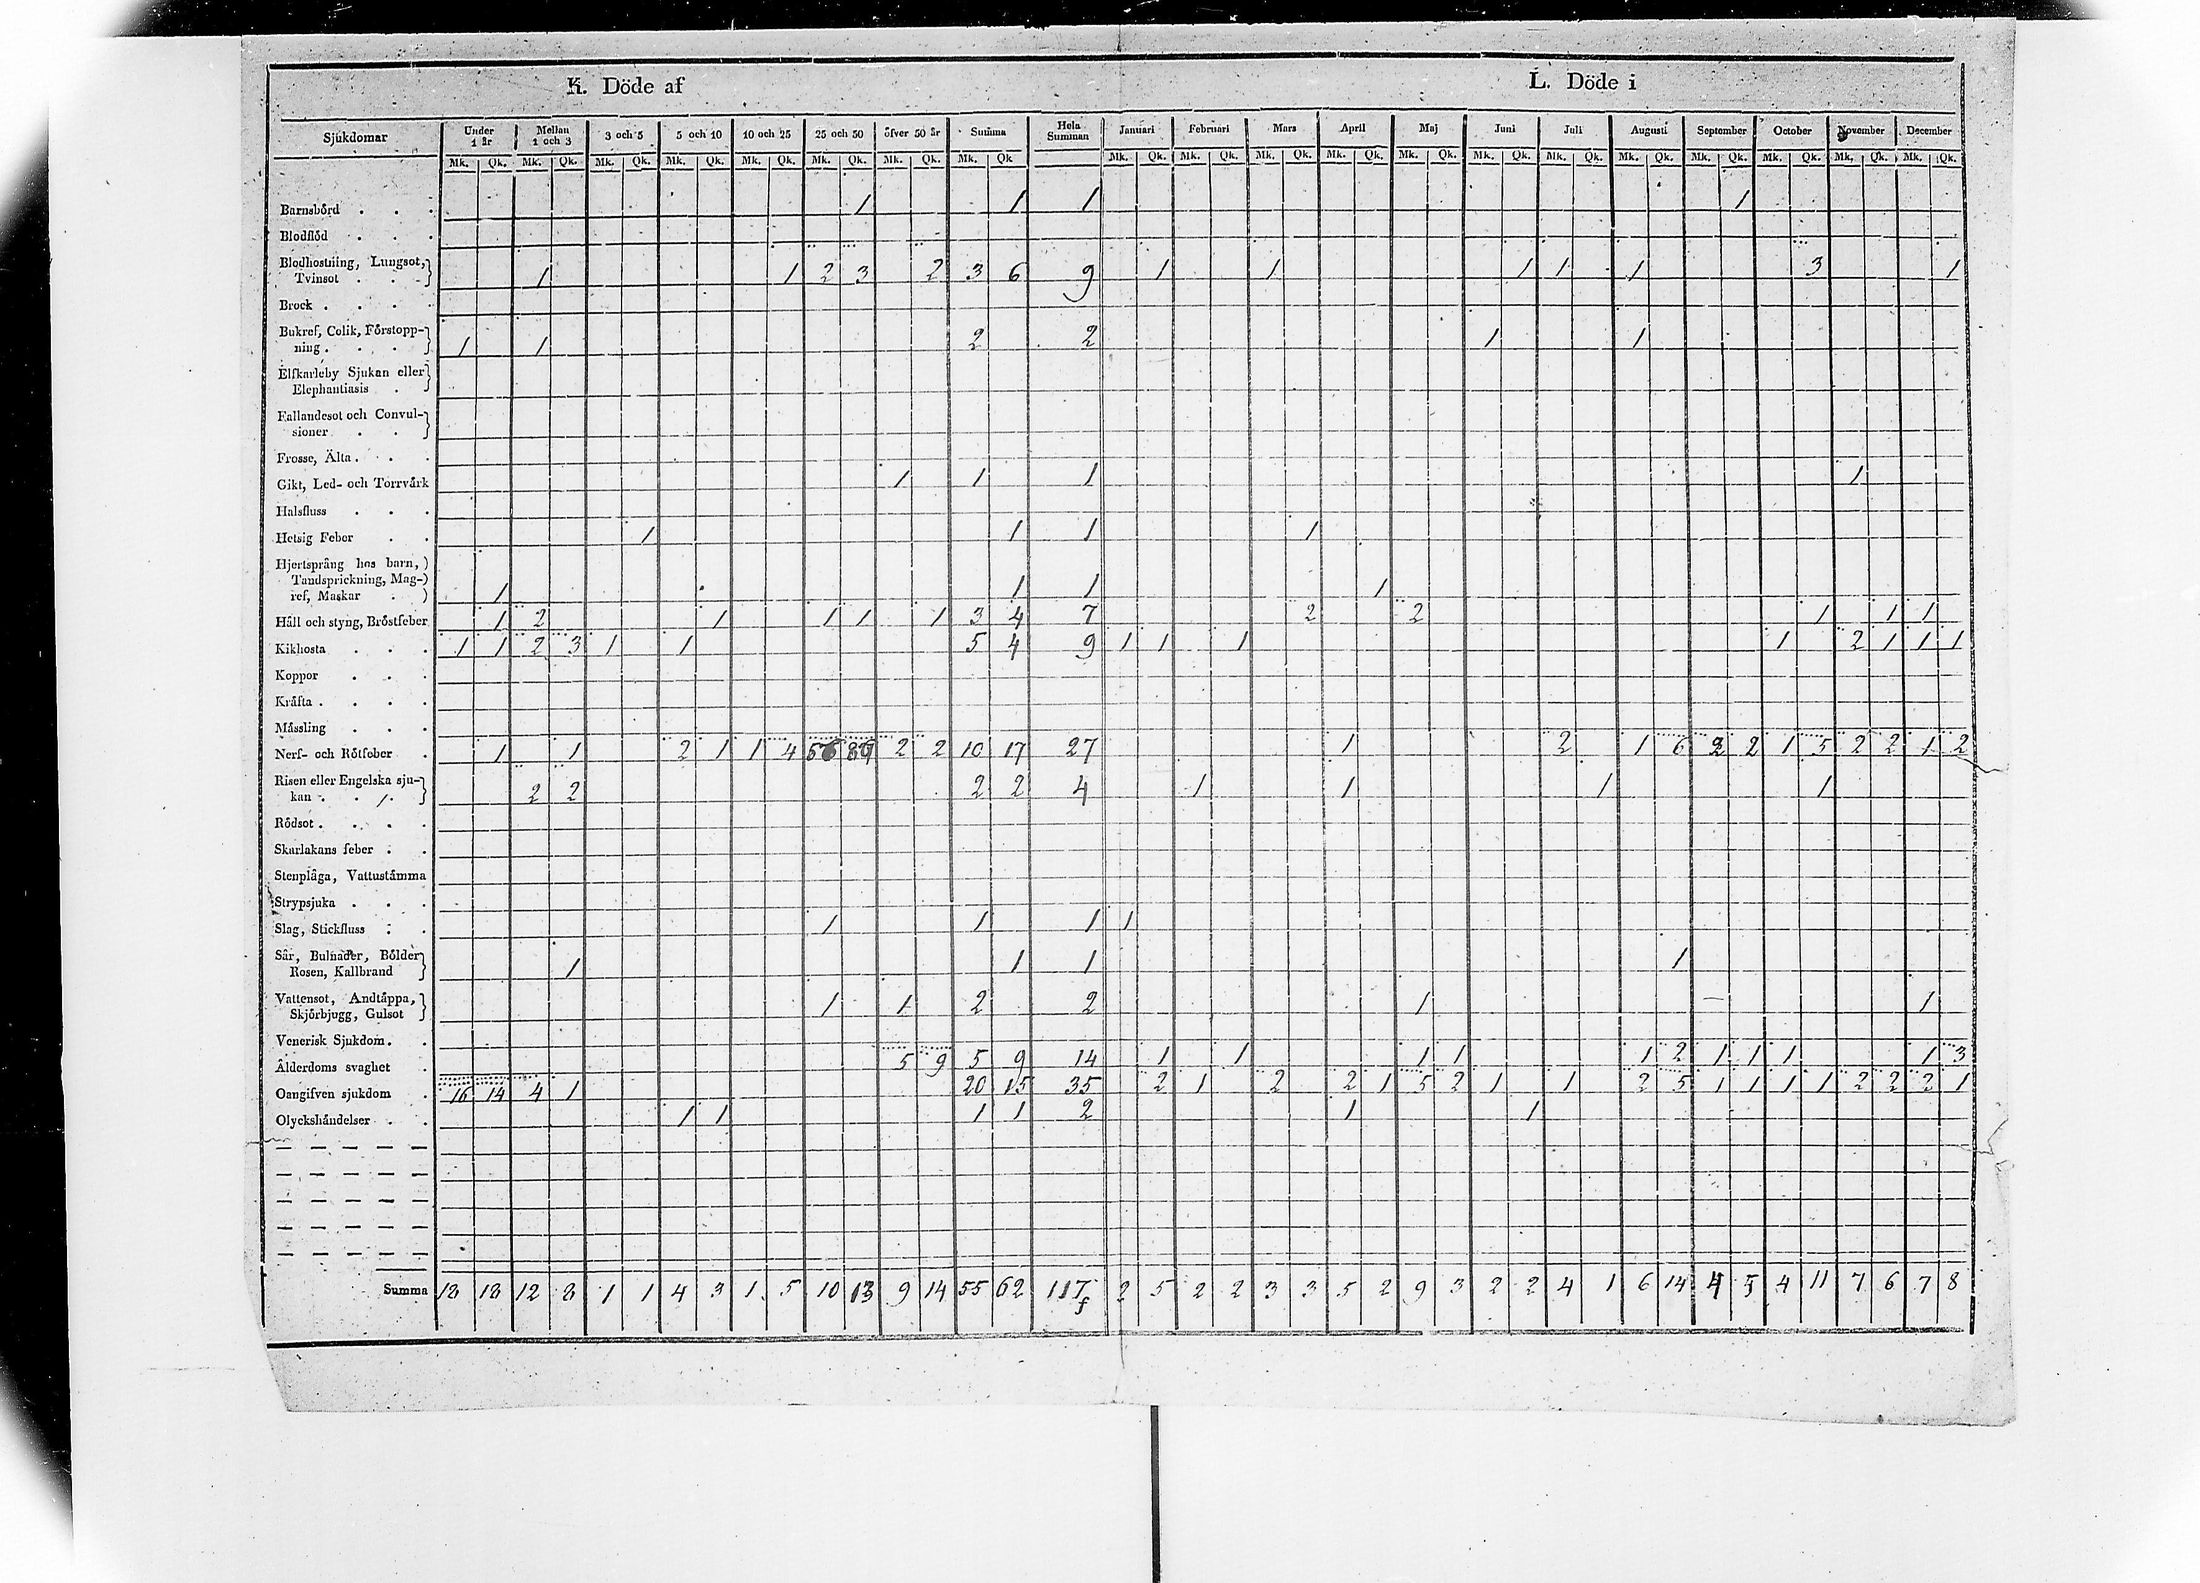 K. Döde af L. Döde i
Sjukdomar Under 1 år Mellan 1 och 3 3 och 5 5 och 10 10 och 25 25 och 50 öfver 50 år Summa Hela Summan Januari Februari Mars April Maj Juni Juli Augusti September October November December
Mk. Qk. Mk. Qk. Mk. Qk. Mk. Qk. Mk. Qk. Mk. Qk. Mk. Qk. Mk. Qk Mk. Qk. Mk. Qk. Mk. Qk. Mk. Qk. Mk. Qk. Mk. Qk. Mk. Qk. Mk. Qk. Mk. Qk. Mk. Qk. Mk. Qk. Mk. Qk.
Barnsbörd . . . 1 1 1 1
Blodflöd . . .
Blodhostning, Lungsot,
Tvinsot . . . 1 1 2 3 2 3 6 9 1 1 1 1 1 3 1
Brock . . . .
Bukref, Colik, Förstopp-
ning . . . . 1 1 2 2 1 1
Elfkarleby Sjukan eller
Elephantiasis .
Fallandesot och Convul-
sioner . .
Frosse, Älta . . .
Gikt, Led- och Torrvärk 1 1 1 1
Halsfluss . . .
Hetsig Feber . . 1 1 1 1
Hjertsprång hos barn,
Tandsprickning, Mag-
ref, Maskar . 1 1 1 1
Håll och styng, Bröstfeber 1 2 1 1 1 1 3 4 7 2 2 1 1 1
Kikhosta . . . 1 1 2 3 1 1 5 4 9 1 1 1 1 2 1 1 1
Koppor . . .
Kräfta . . . .
Mässling . . .
Nerf- och Rötfeber . 1 1 2 1 1 4 2 2 10 17 27 1 2 1 6 2 2 1 5 2 2 1 2
Risen eller Engelska sju-
kan . . . 2 2 2 2 4 1 1 1 1
Rödsot . . . .
Skarlakans feber . .
Stenplåga, Vattustämma
Strypsjuka . . .
Slag, Stickfluss . . 1 1 1 1
Sår, Bulnader, Bölder
Rosen, Kallbrand 1 1 1 1
Vattensot, Andtäppa,
Skjörbjugg, Gulsot 1 1 2 2 1 1
Venerisk Sjukdom . .
Ålderdoms svaghet . 5 9 5 9 14 1 1 1 1 1 2 1 1 1 1 3
Oangifven sjukdom . 16 14 4 1 20 15 35 2 1 2 2 1 5 2 1 1 2 5 1 1 1 1 2 2 2 1
Olyckshändelser . . 1 1 1 1 2 1 1
Summa 18 18 12 8 1 1 4 3 1 5 10 13 9 14 55 62 117 2 5 2 2 3 3 5 2 9 3 2 2 4 1 6 14 4 5 4 11 7 6 7 8